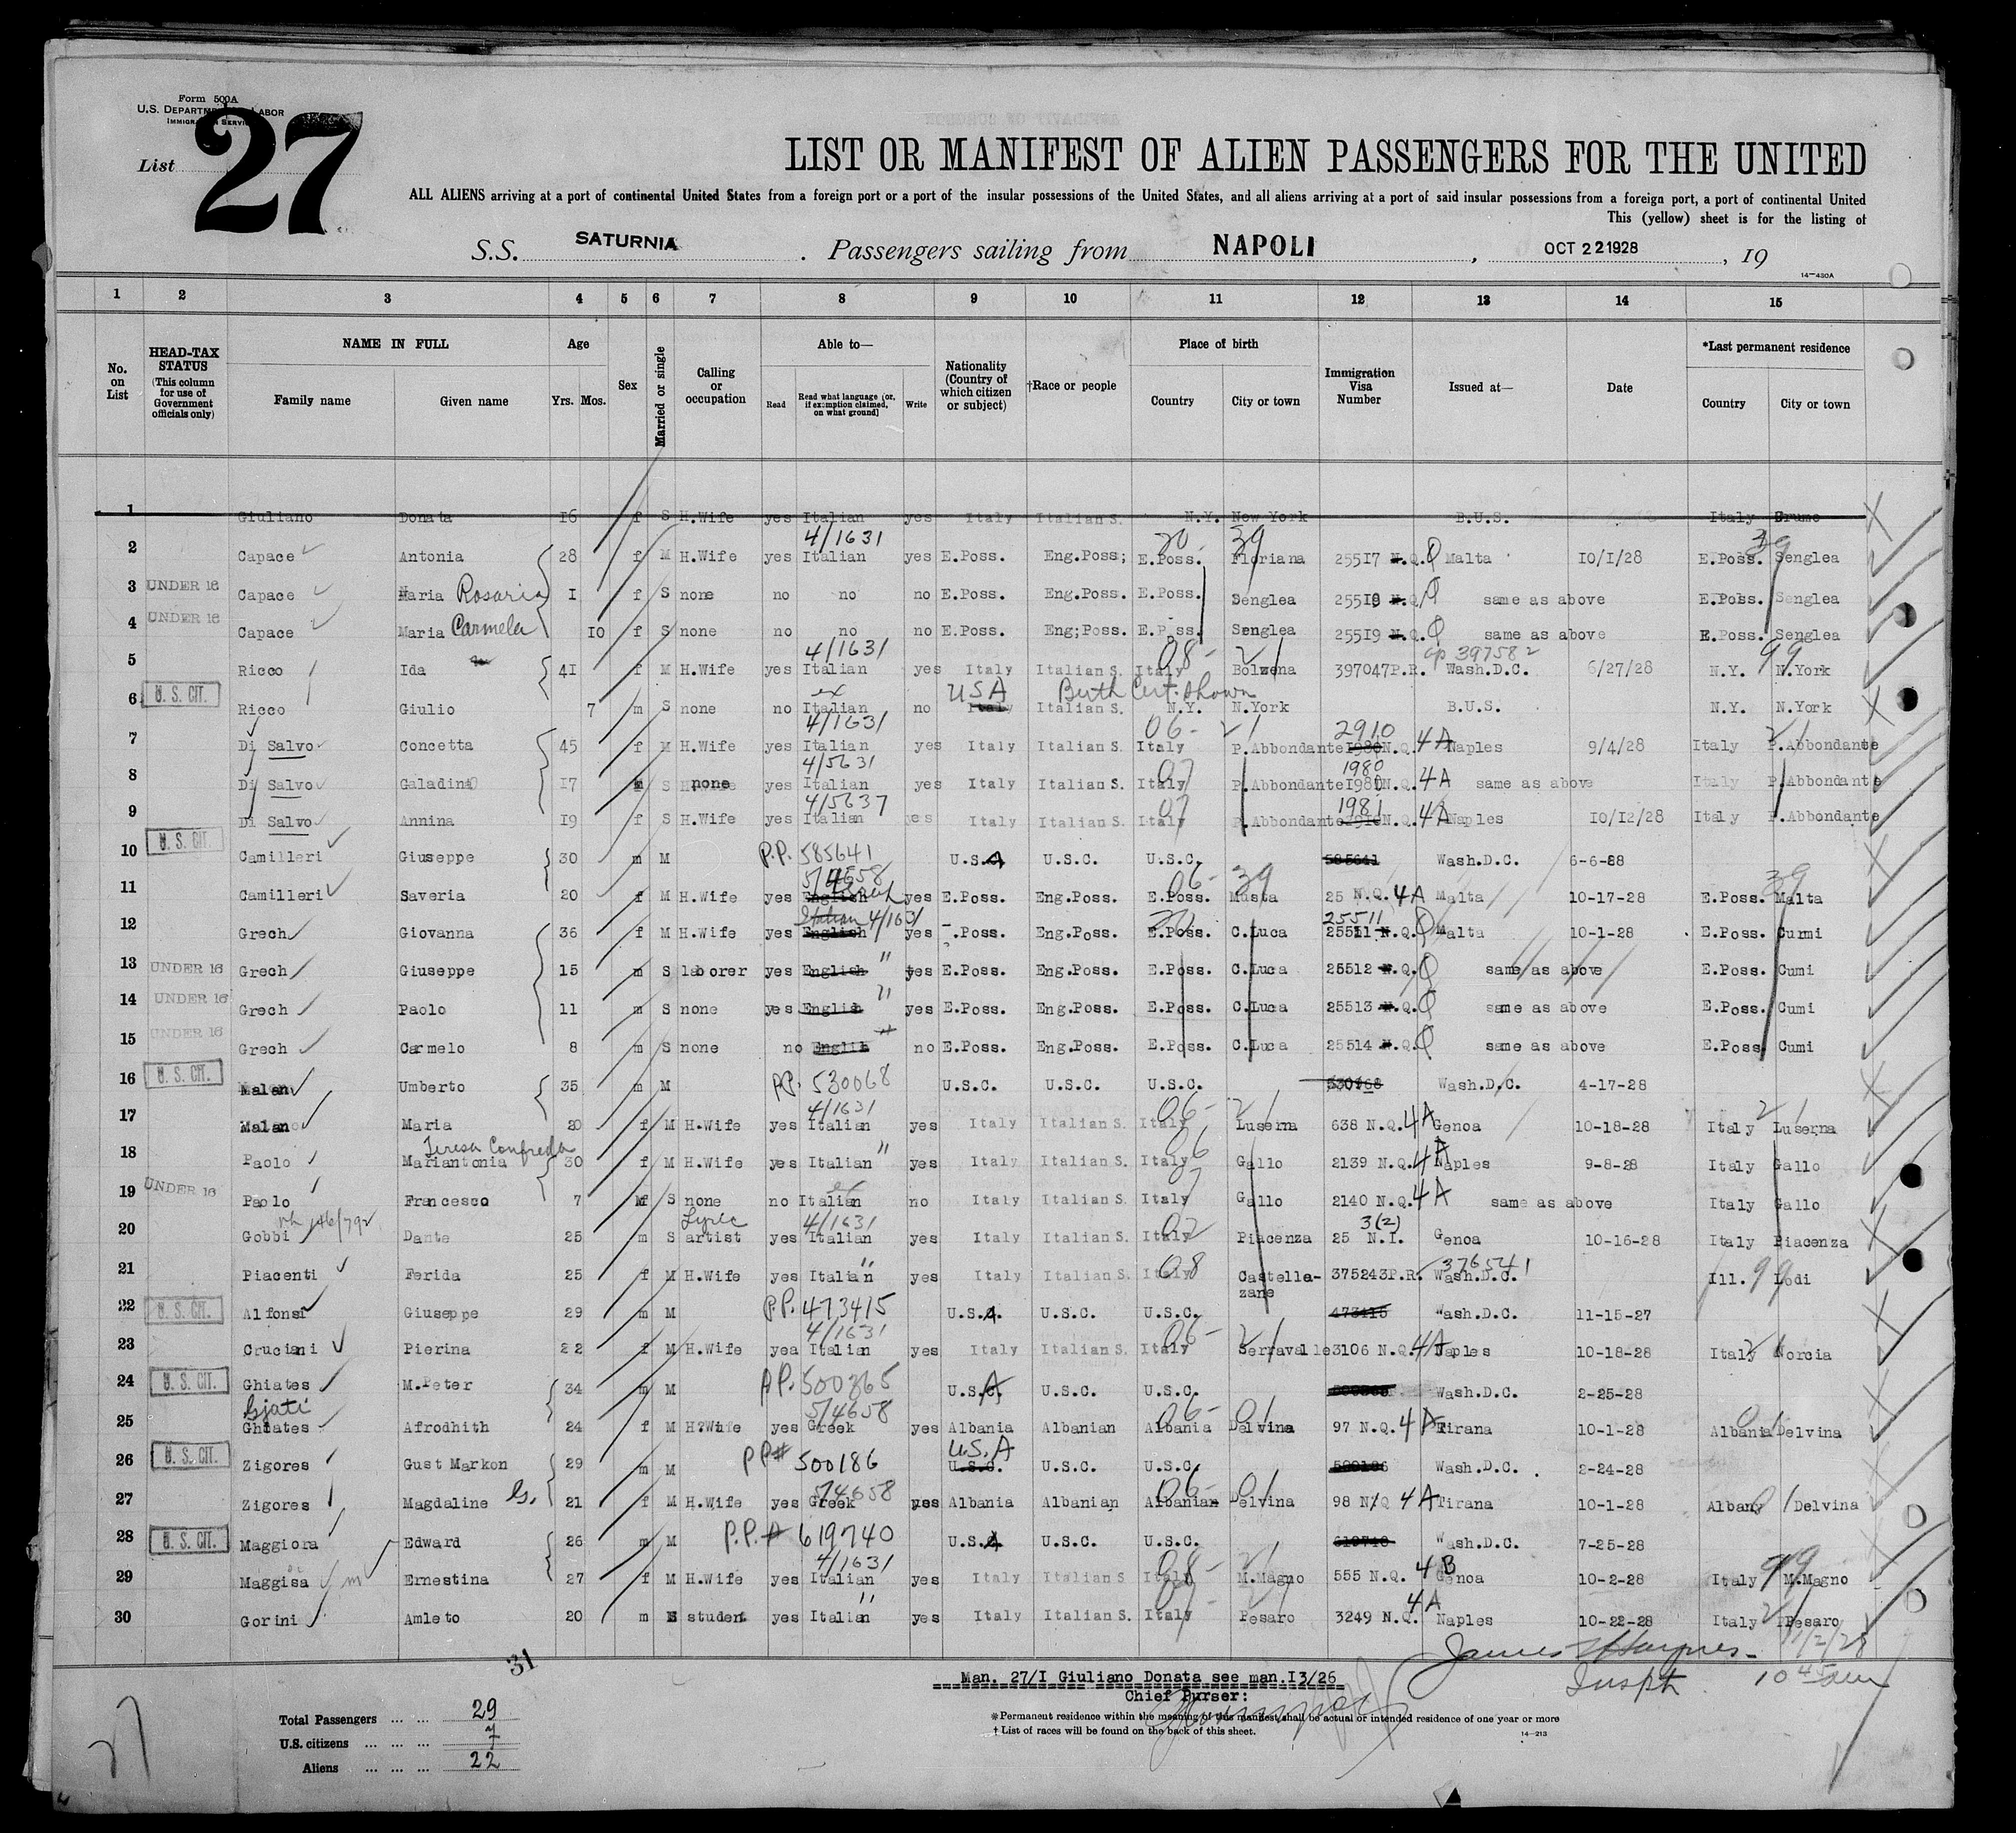 Form 500A
U.S. DEPARTMENT OF LABOR
IMMIGRATION SERVICE
List 27
LIST OR MANIFEST OF ALIEN PASSENGERS FOR THE UNITED
ALL ALIENS arriving at a port of continental United States from a foreign port or a port of the insular possessions of the United States, and all aliens arriving at a port of said insular possessions from a foreign port, a port of continental United
This (yellow) sheet is for the listing of
S.S. SATURNIA . Passengers sailing from NAPOLI , OCT 22 1928 , 19
14—430A
1 2 3 4 5 6 7 8 9 10 11 12 13 14 15
No. on List
HEAD-TAX STATUS (This column for use of Government officials only)
NAME IN FULL
Family name Given name
Age
Yrs. Mos.
Sex
Married or single
Calling or occupation
Able to—
Read Read what language [or, if exemption claimed, on what ground] Write
Nationality (Country of which citizen or subject)
†Race or people
Place of birth
Country City or town
Immigration Visa Number
Issued at—
Date
*Last permanent residence
Country City or town
1 Giuliano Donata 16 f S H.Wife yes Italian yes Italy Italian S. N.Y. New York B.U.S. Italy Grumo
4/1631 20- 39 39
2 Capace Antonia 28 f M H.Wife yes Italian yes E.Poss. Eng.Poss; E.Poss. Floriana 25517 N.Q. Q Malta 10/1/28 E.Poss. Senglea
3 UNDER 16 Capace Maria Rosaria 1 f S none no no no E.Poss. Eng.Poss. E.Poss. Senglea 25518 N.Q. Q same as above E.Poss. Senglea
4 UNDER 16 Capace Maria Carmela 10 f S none no no no E.Poss. Eng;Poss. E.Poss. Senglea 25519 N.Q. Q same as above E.Poss. Senglea
4/1631 08- 21 397582 99
5 Ricco Ida 41 f M H.Wife yes Italian yes Italy Italian S. Italy Bolzena 397047P.R. Wash.D.C. 6/27/28 N.Y. N.York
ex USA Birth Cert. shown
6 U.S. CIT. Ricco Giulio 7 m S none no Italian no Italy Italian S. N.Y. N.York B.U.S. N.Y. N.York
4/1631 06- 21 2910 21
7 Di Salvo Concetta 45 f M H.Wife yes Italian yes Italy Italian S. Italy P.Abbondante 1980 N.Q. 4A Naples 9/4/28 Italy P.Abbondante
4/5631 07 1980
8 Di Salvo Galadino 17 m S none yes Italian yes Italy Italian S. Italy P.Abbondante 1980 N.Q. 4A same as above Italy P.Abbondante
4/5637 07 1981
9 Di Salvo Annina 19 f S H.Wife yes Italian yes Italy Italian S. Italy P.Abbondante N.Q. 4A Naples 10/12/28 Italy P.Abbondante
10 U.S. CIT. Camilleri Giuseppe 30 m M P.P. 585641 U.S.A U.S.C. U.S.C. 585641 Wash.D.C. 6-6-28
5/4658 06- 39 39
11 Camilleri Saveria 20 f M H.Wife yes English yes E.Poss. Eng.Poss. E.Poss. Musta 25 N.Q. 4A Malta 10-17-28 E.Poss. Malta
Italian 4/1631 20 25511
12 Grech Giovanna 36 f M H.Wife yes English yes .Poss. Eng.Poss. E.Poss. C.Luca 25511 N.Q. Q Malta 10-1-28 E.Poss. Curmi
13 UNDER 16 Grech Giuseppe 15 m S laborer yes English " yes E.Poss. Eng.Poss. E.Poss. C.Luca 25512 N.Q. Q same as above E.Poss. Cumi
14 UNDER 16 Grech Paolo 11 m S none yes English " yes E.Poss. Eng.Poss. E.Poss. C.Luca 25513 N.Q. Q same as above E.Poss. Cumi
15 UNDER 16 Grech Carmelo 8 m S none no Englih no E.Poss. Eng.Poss. E.Poss. C.Luca 25514 N.Q. Q same as above E.Poss. Cumi
16 U.S. CIT. Malan Umberto 35 m M P.P. 530068 U.S.C. U.S.C. U.S.C. Wash.D.C. 4-17-28
4/1631 06- 21 21
17 Malan Maria 20 f M H.Wife yes Italian yes Italy Italian S. Italy Luserna 638 N.Q. 4A Genoa 10-18-28 Italy Luserna
Teresa Confreda 06
18 Paolo Mariantonia 30 f M H.Wife yes Italian " yes Italy Italian S. Italy Gallo 2139 N.Q. 4A Naples 9-8-28 Italy Gallo
19 UNDER 16 Paolo Francesco 7 M S none no Italian no Italy Italian S. Italy Gallo 2140 N.Q. 4A same as above Italy Gallo
146/792 Lyric 4/1631 02 3(2)
20 Gobbi Dante 25 m S artist yes Italian yes Italy Italian S. Italy Piacenza 25 N.I. Genoa 10-16-28 Italy Piacenza
" 08 376541 99
21 Piacenti Ferida 25 f M H.Wife yes Italian yes Italy Italian S. Italy Castella-zane 375243P.R. Wash.D.C. Ill. Lodi
22 U.S. CIT. Alfonsi Giuseppe 29 m M P.P. 473415 U.S.A. U.S.C. U.S.C. 473415 Wash.D.C. 11-15-27
4/1631 06- 21 21
23 Cruciani Pierina 22 f M H.Wife yea Italian yes Italy Italian S. Italy Serravalle 3106 N.Q. 4A Naples 10-18-28 Italy Norcia
24 U.S. CIT. Ghiates M.Peter 34 m M P.P. 500365 U.S.A U.S.C. U.S.C. Wash.D.C. 2-25-28
Gjati 5/4658 06- 01 01
25 Ghiates Afrodhith 24 f M H?Wife yes Greek yes Albania Albanian Albania Delvina 97 N.Q. 4A Tirana 10-1-28 Albania Delvina
U.S.A
26 U.S. CIT. Zigores Gust Markon 29 m M PP# 500186 U.S.C. U.S.C. U.S.C. 500186 Wash.D.C. 2-24-28
5/4658 06- 01 01
27 Zigores Magdaline G. 21 f M H.Wife yes Greek yes Albania Albanian Albanian Delvina 98 N/Q 4A Tirana 10-1-28 Albany Delvina
28 U.S. CIT. Maggiora Edward 26 m M P.P.# 619740 U.S.A U.S.C. U.S.C. 619740 Wash.D.C. 7-25-28
4/1631 08- 21 99
29 Maggisa Ernestina 27 f M H.Wife yes Italian yes Italy Italian S Italy M.Magno 555 N.Q. 4B Genoa 10-2-28 Italy M.Magno
" 07 21 4A 21
30 Gorini Amleto 20 m S studen yes Italian yes Italy Italian S. Italy Pesaro 3249 N.Q. Naples 10-22-28 Italy Pesaro
31
Man. 27/I Giuliano Donata see man.I3/26
Chief Purser:
James Haynes - 11/2/28
Inspt. 10 45 am
Total Passengers ... ... 29
U.S. citizens ... ... ... 7
Aliens ... ... ... 22
27
* Permanent residence within the meaning of this manifest shall be actual or intended residence of one year or more
† List of races will be found on the back of this sheet.
14—213